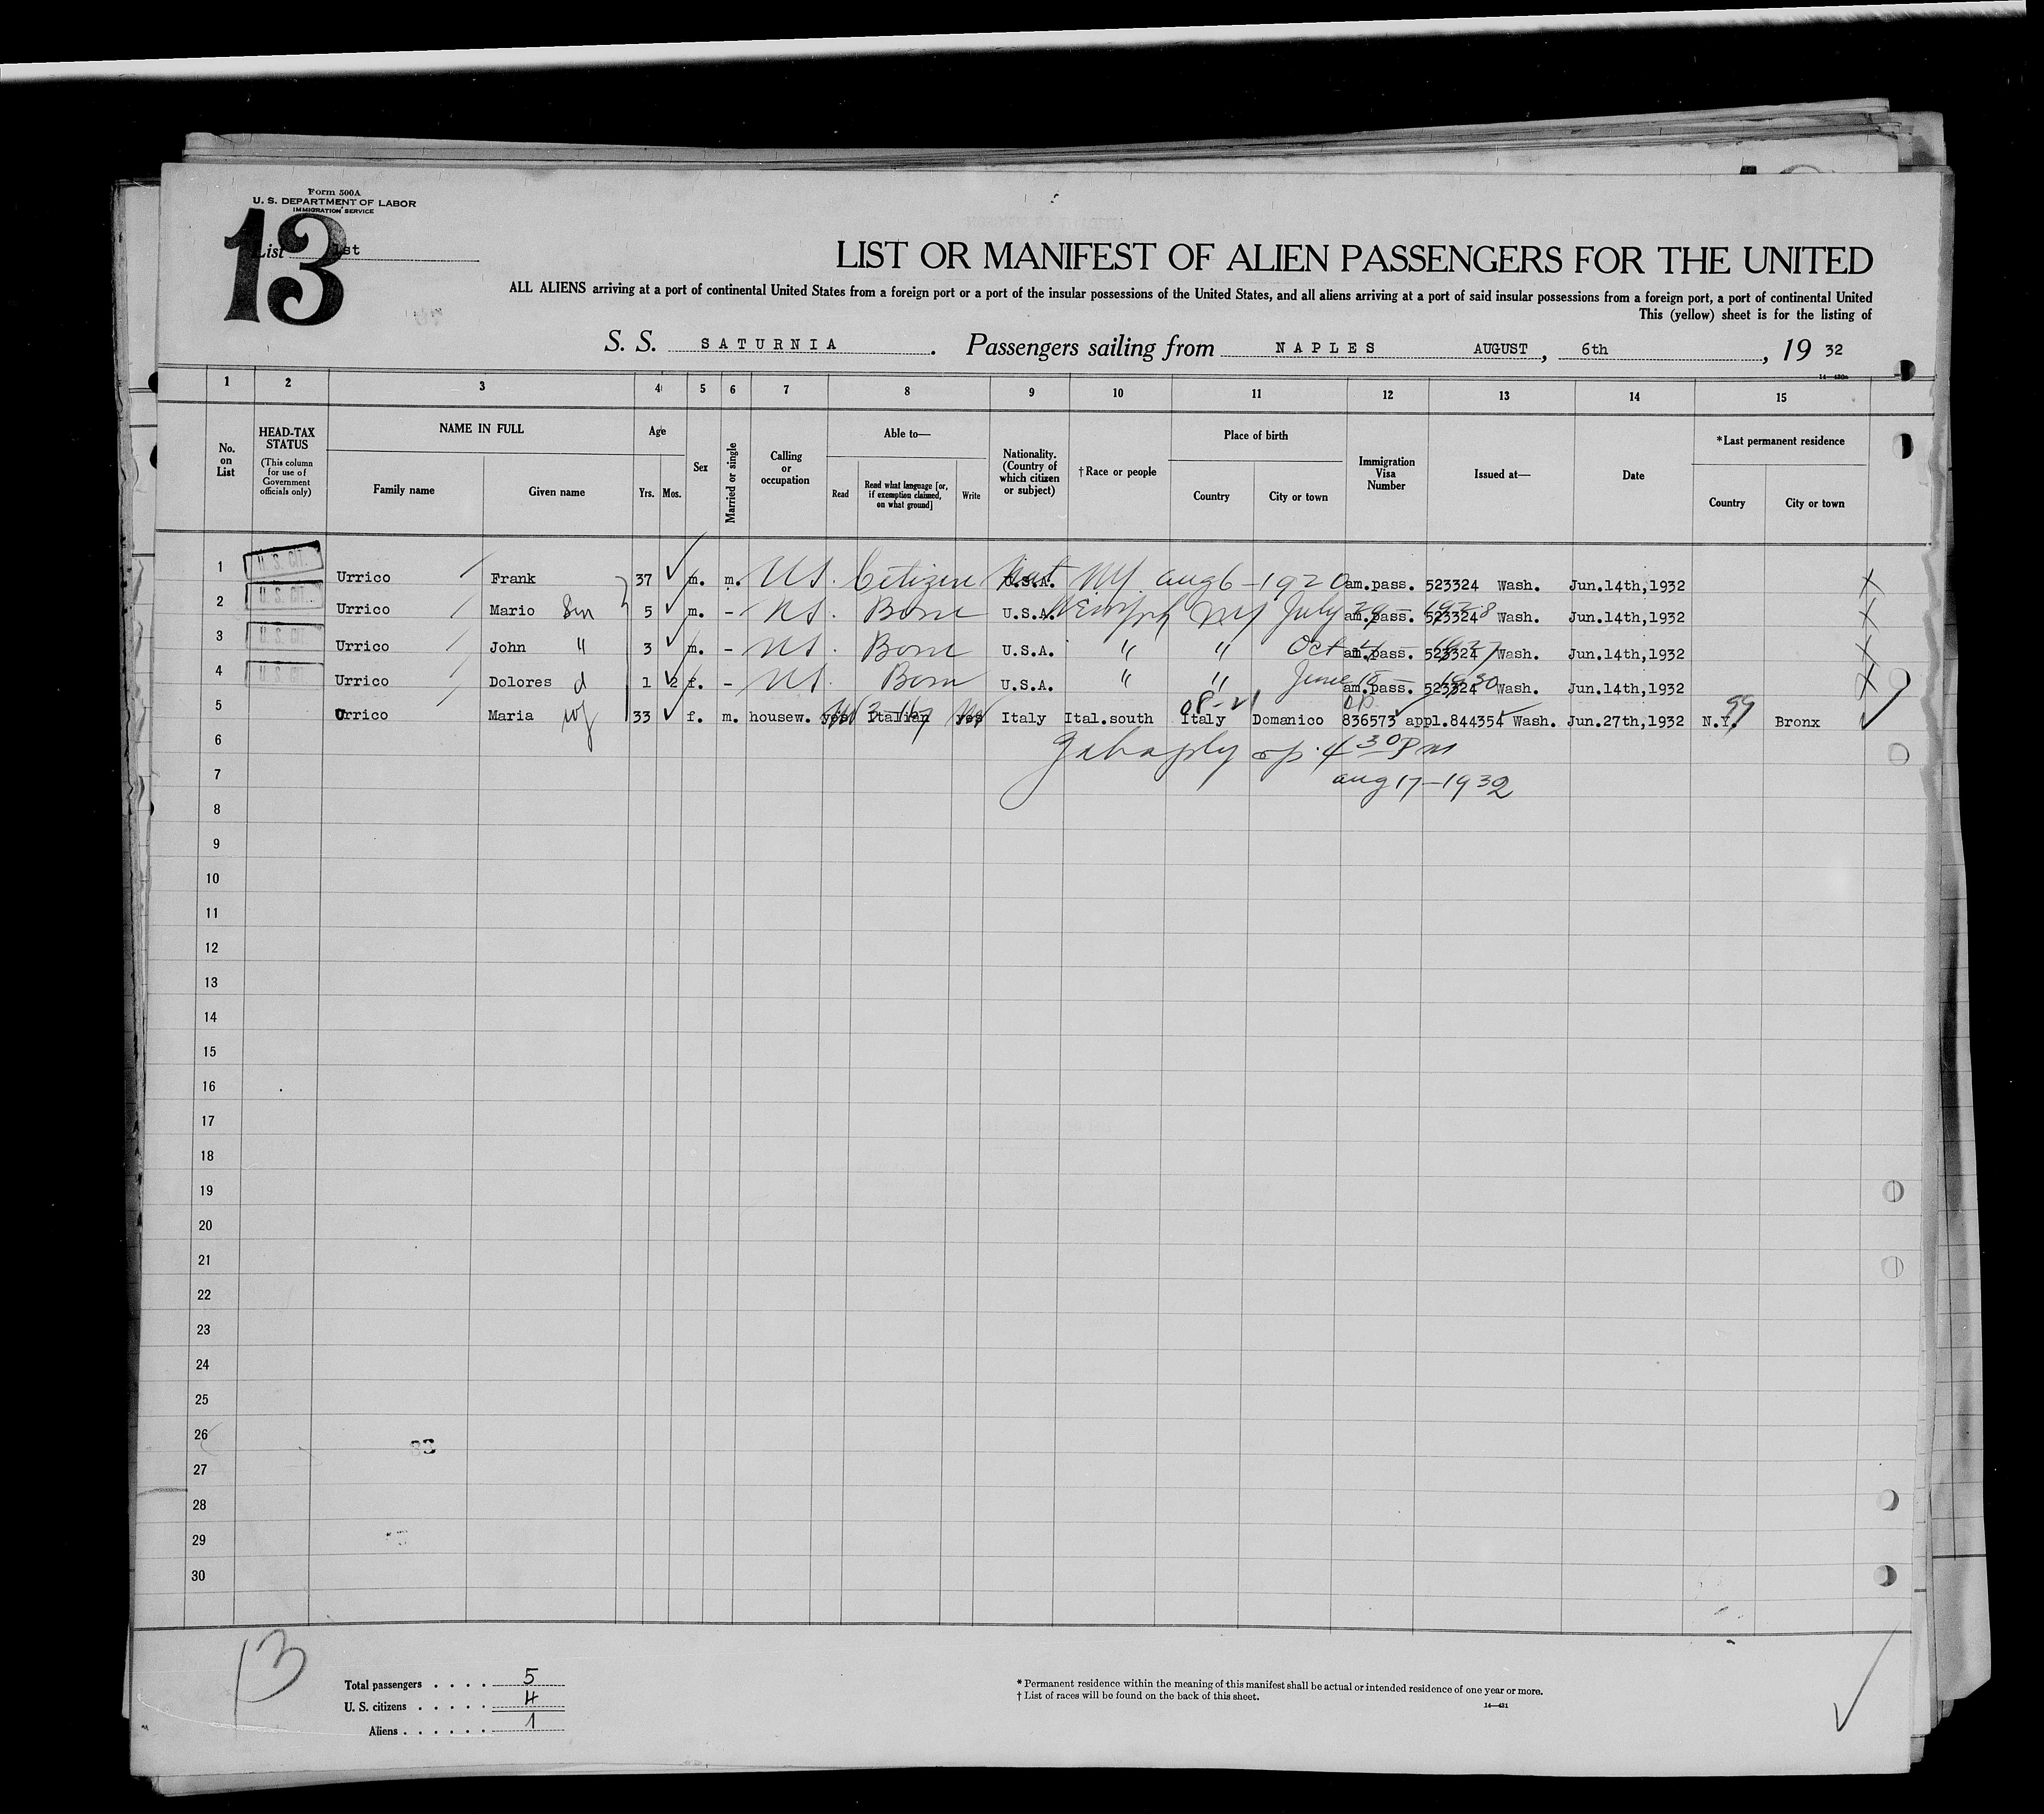 Form 500A
U. S. DEPARTMENT OF LABOR
IMMIGRATION SERVICE
13
List 1st
LIST OR MANIFEST OF ALIEN PASSENGERS FOR THE UNITED
ALL ALIENS arriving at a port of continental United States from a foreign port or a port of the insular possessions of the United States, and all aliens arriving at a port of said insular possessions from a foreign port, a port of continental United
This (yellow) sheet is for the listing of
S. S. SATURNIA. Passengers sailing from NAPLES AUGUST, 6th, 19 32
1 2 3 4 5 6 7 8 9 10 11 12 13 14 15
No. on List
HEAD-TAX STATUS (This column for use of Government officials only)
NAME IN FULL
Family name
Given name
Age
Yrs. Mos.
Sex
Married or single
Calling or occupation
Able to—
Read
Read what language [or, if exemption claimed, on what ground]
Write
Nationality. (Country of which citizen or subject)
†Race or people
Place of birth
Country
City or town
Immigration Visa Number
Issued at—
Date
*Last permanent residence
Country
City or town
1 U. S. CIT. Urrico Frank 37 m. m. US. Citizen U.S.A. Nat NY aug 6-1920 am.pass. 523324 Wash. Jun.14th,1932
2 U. S. CIT. Urrico Mario Son 5 m. - US. Born U.S.A. NY July am.pass. 523324 Wash. Jun.14th,1932
3 U. S. CIT. Urrico John " 3 m. - US. Born U.S.A. " " Oct am.pass. 523324 Wash. Jun.14th,1932
4 U. S. CIT. Urrico Dolores d 1 2 f. - US. Born U.S.A. " " June 1930 am.pass. 523324 Wash. Jun.14th,1932
5 Urrico Maria wf 33 f. m. housew. yes Italian yes Italy Ital.south Italy Domanico 836573 appl.844354 Wash. Jun.27th,1932 N.Y. 99 Bronx
6 4 30 Pm
7 aug 17-1932
8
9
10
11
12
13
14
15
16
17
18
19
20
21
22
23
24
25
26
27
28
29
30
13
Total passengers . . . . 5
U. S. citizens . . . . . 4
Aliens . . . . . . 1
* Permanent residence within the meaning of this manifest shall be actual or intended residence of one year or more.
† List of races will be found on the back of this sheet.
14—431